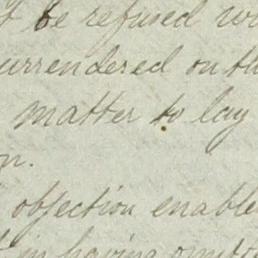 be refused
urrendered on th
matter to lay
on.
objection enable
in having omitt